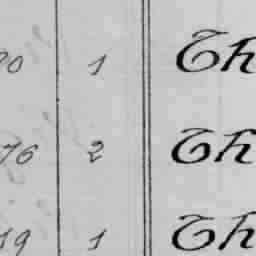 20 1 Th
76 2 Th
19 1 Th